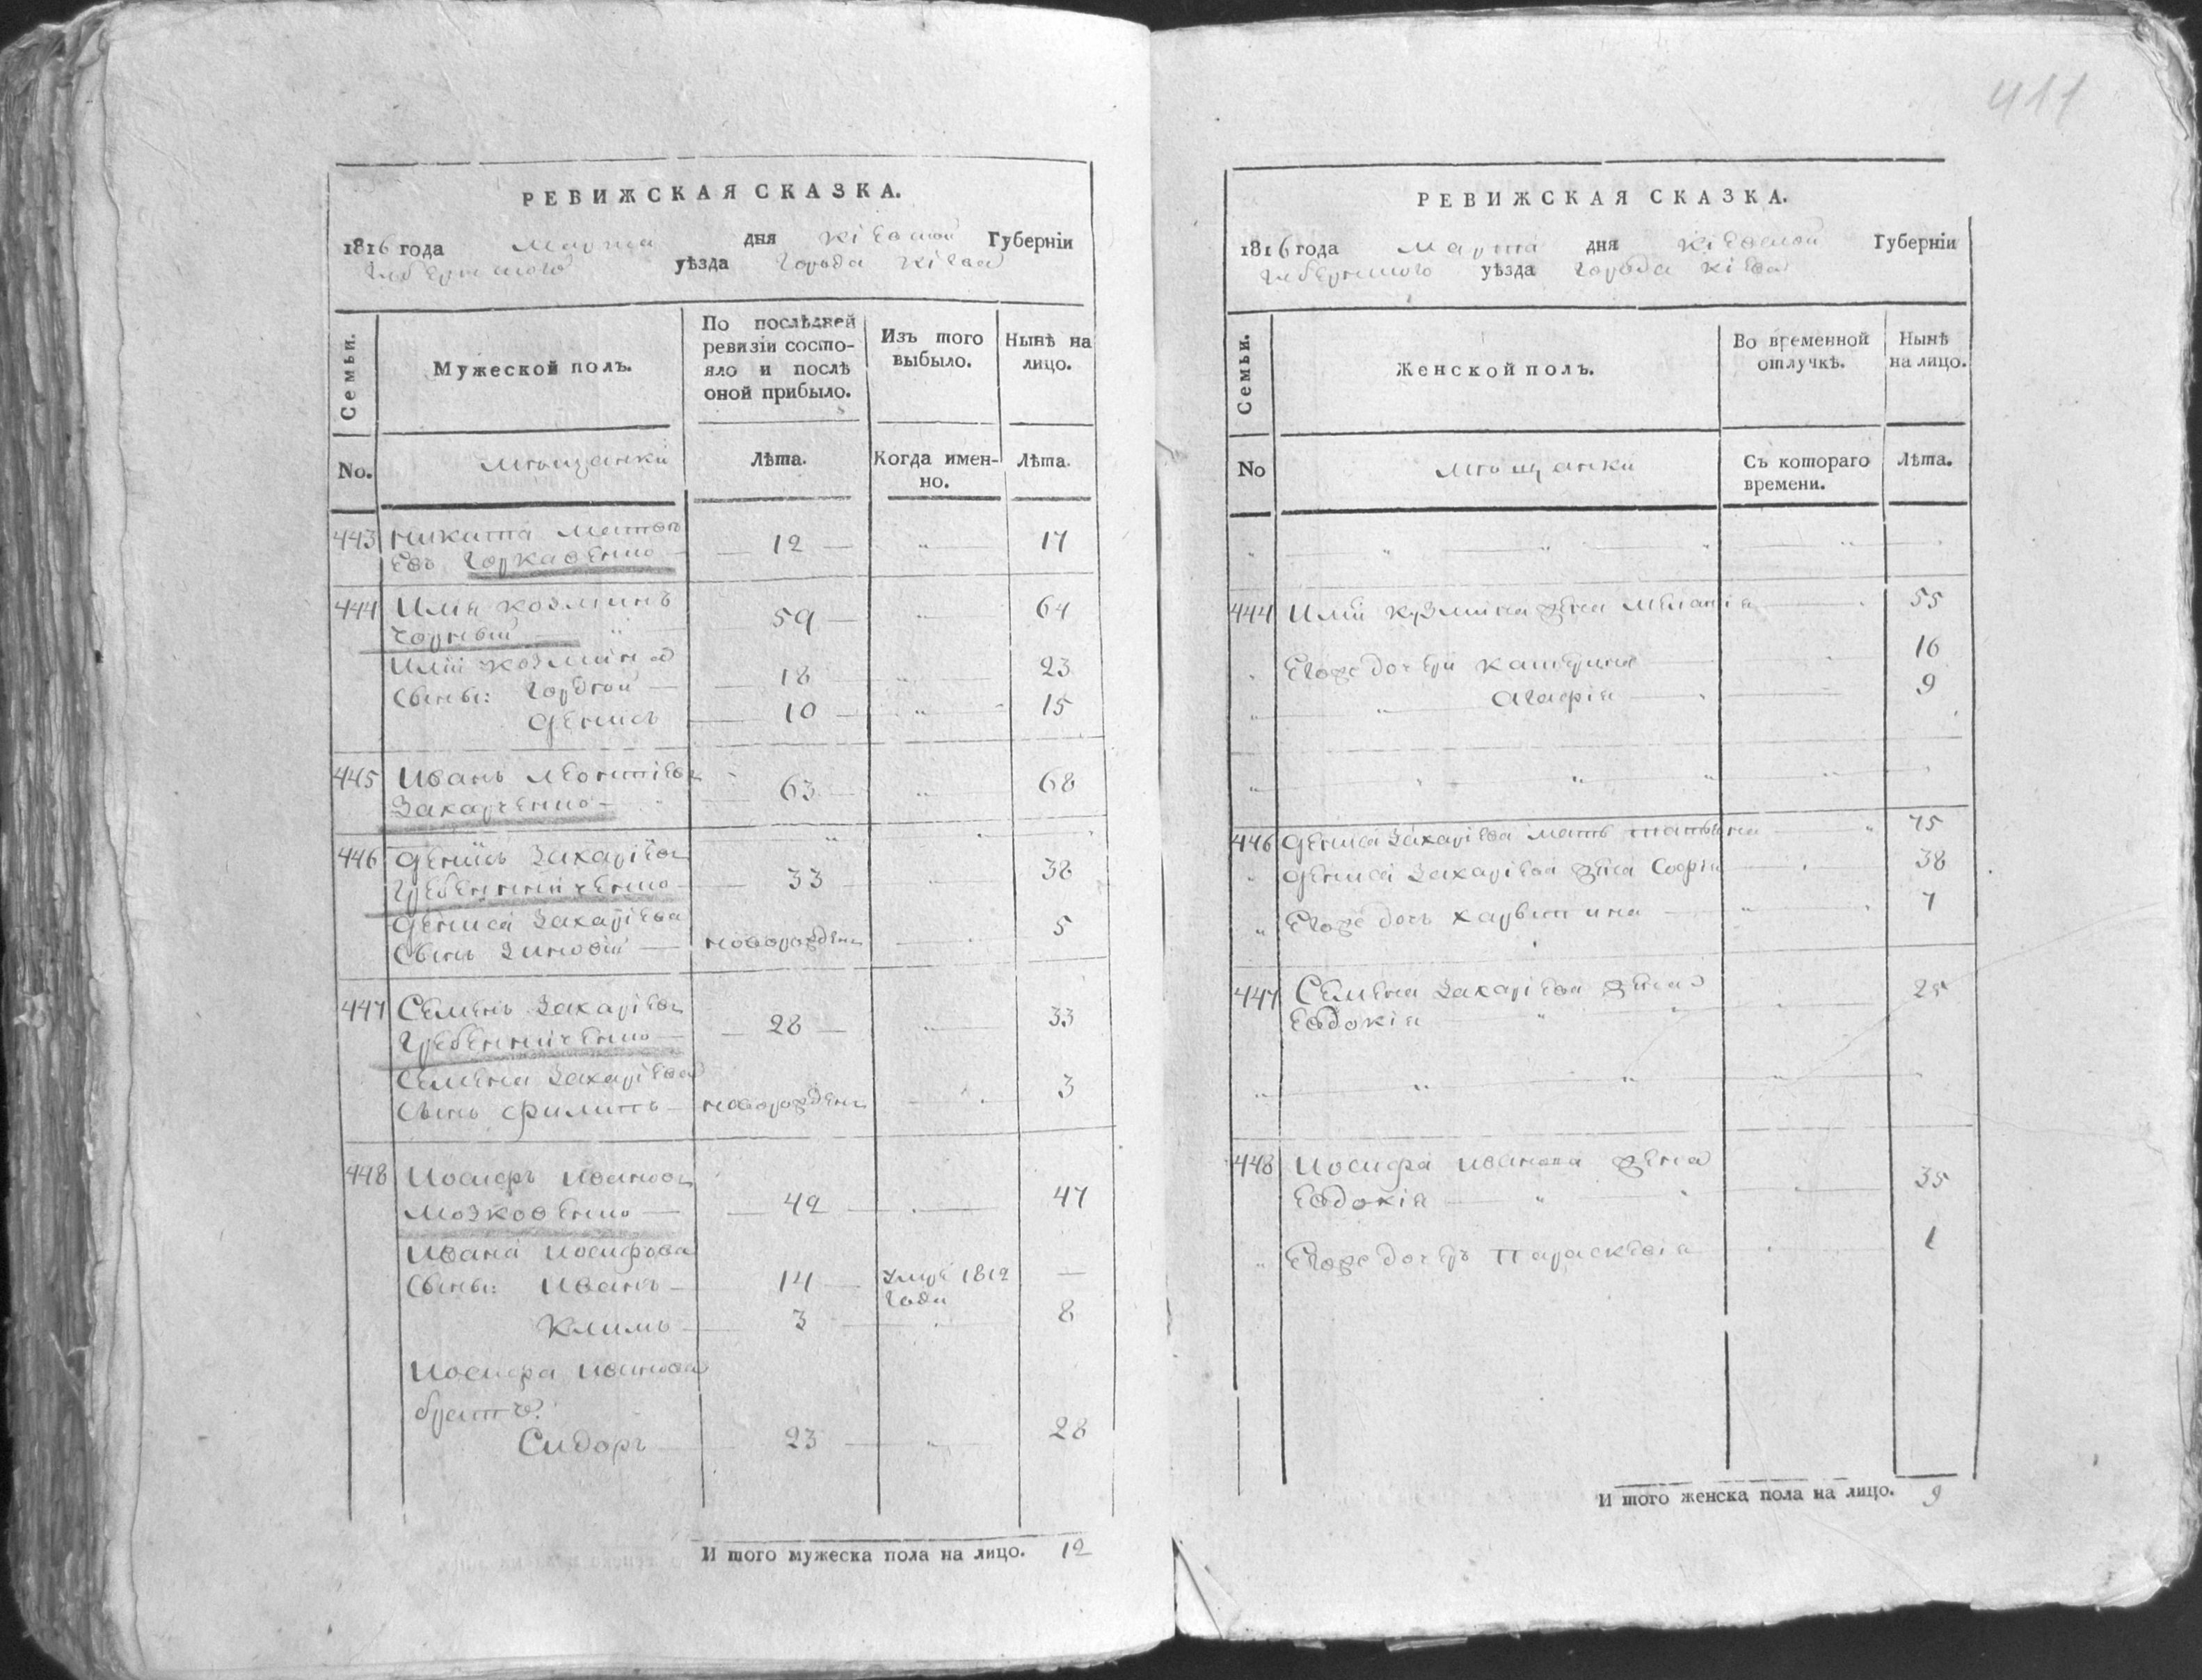 411
РЕВИЖСКАЯ СКАЗКА.
1816 года Марта дня Кіевской Губерніи
Губернского уѣзда Города Кіева
Семьи.
Мужеской полъ.
По послѣдней ревизіи состо-
яло и послѣ оной прибыло.
Изъ того выбыло.
Нынѣ на лицо.
No.
мѣщанки
Лѣта.
Когда имен-
но.
Лѣта.
443 Никита Матвѣ
евъ Горкавенко — 12 — „ 17
444 Илія Козминъ
Чорный 59 — „ 64
Иліи Козмина
Сыны: Гордѣй — 18 „ 23
Денисъ 10 — „ 15
445 Иванъ Леонтіевъ
Захарченко — 63 „ 68
446 Денисъ Захаріевъ
Гребенниченко — 33 „ 38
Дениса Захаріева
Сынъ Зиновій — новорожденъ 5
447 Семенъ Захаріевъ
Гребенниченко — 28 — „ 33
Семена Захаріева
Сынъ Филипъ — новорожденъ 3
448 Иосифъ Ивановъ
Мозковенко — 42 — 47
Ивана Иосифова
Сыны: Иванъ — 14 — умре 1812 —
года
Климъ — 3 8
Иосифа Иванова
братъ
Сидоръ 23 — „ 28
И того мужеска пола на лицо. 12
РЕВИЖСКАЯ СКАЗКА.
1816 года Марта дня Кіевской Губерніи
Губернского уѣзда Города Кіева
Семьи.
Женской полъ.
Во временной отлучкѣ.
Нынѣ на лицо.
No
мѣщанки
Съ котораго времени.
Лѣта.
444 Иліи Кузмина жена Меланія 55
Егоже дочери Катерина 16
„ Агафія — 9
446 Дениса Захаріева мать Татьяна 75
Дениса Захаріева жена Софія 38
„ Егоже дочь Харытина 7
447 Семена Захаріева жена
Евдокія „ 25
448 Иосифа Иванова жена
Евдокія — „ 35
„ Егоже дочерь Параскевія 1
И того женска пола на лицо. 9